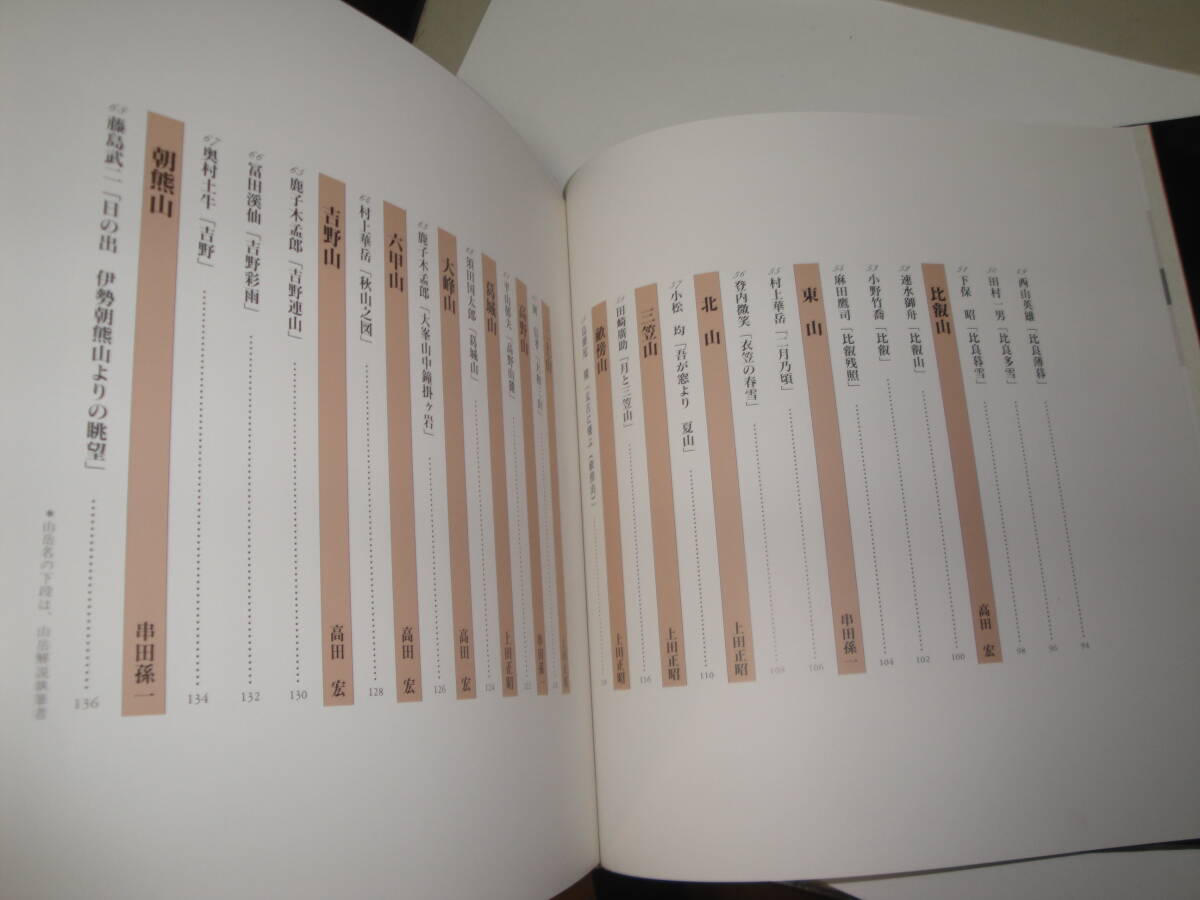 49 西山英雄「比良薄暮」 94
50 田村一男「比良多雪」 96
51 下保 昭「比良暮雪」 98
比叡山 高田 宏
52 速水御舟「比叡山」 100
53 小野竹喬「比叡」 102
54 麻田鷹司「比叡残照」 104
東山 串田孫一
55 村上華岳「二月乃頃」 106
56 登内微笑「衣笠の春雪」
北山 上田正昭
57 小松 均「吾が窓より 夏山」 110
三笠山 上田正昭
田崎廣助「月と三笠山」 116
畝傍山 上田正昭
高野山 串田孫一
平山郁夫「高野山
葛城山 上田正昭
須田国太郎「葛城山」 124
大峰山 高田 宏
63 鹿子木孟郎「大峯山中鐘掛ヶ岩」 126
六甲山 高田 宏
64 村上華岳「秋山之図」 128
吉野山 高田 宏
65 鹿子木孟郎「吉野連山」 130
66 冨田溪仙「吉野彩雨」 132
67 奥村土牛「吉野」 134
朝熊山 串田孫一
68 藤島武二「日の出 伊勢朝熊山よりの眺望」 136
＊山岳名の下段は、山岳解説執筆者